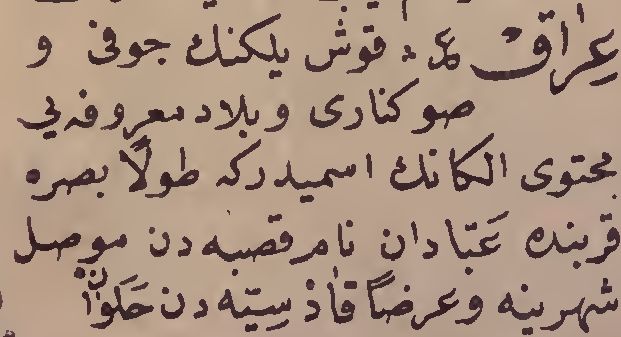 عِرَاق قوش يلكنك جوفى و
صو كنارى و بلاد معروفه يى
محتوى الكانك اسميدركه طولاً بصره
قربنده عَبّادان نام قصبه دن موصل
شهرينه و عرضاً قادْسِيّه دن حَلوَان